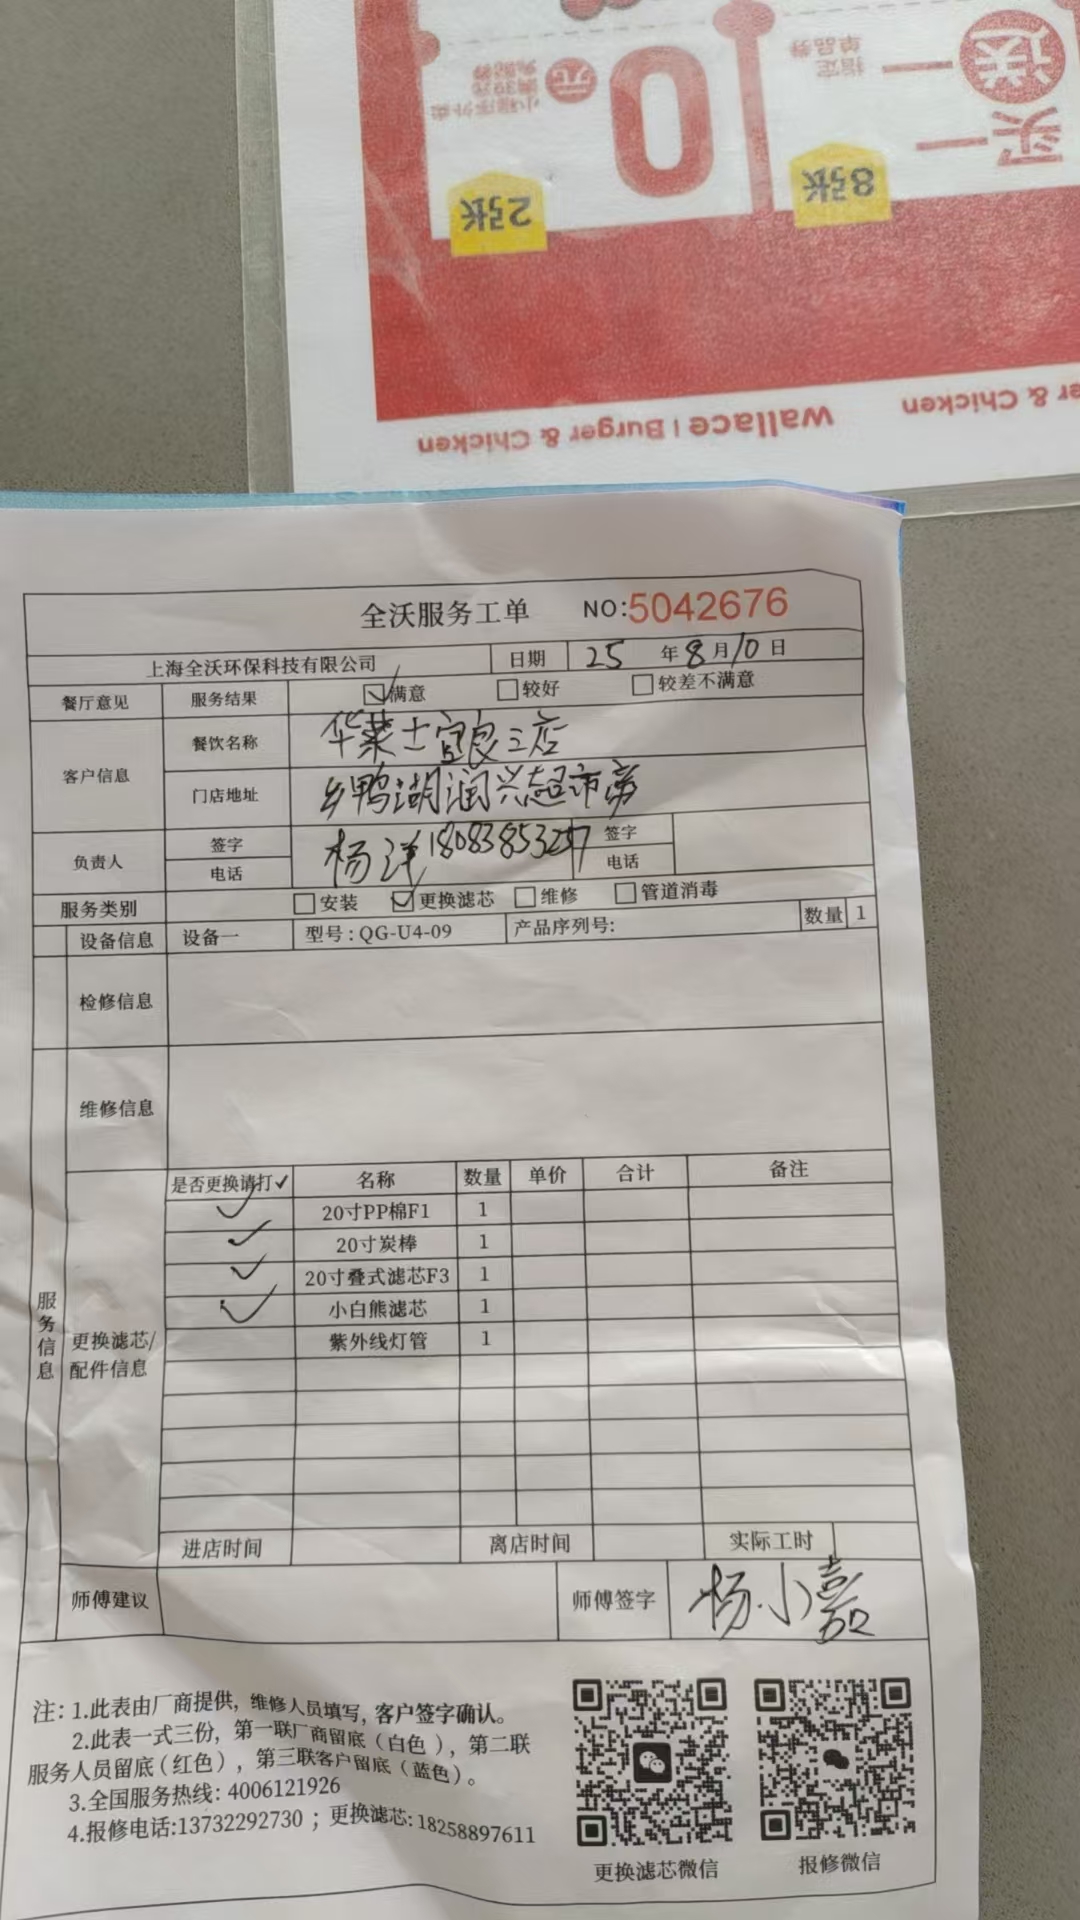 买一送一
指定
单品券
8张
0元
小程序外卖
满39元
免配券
2张
Wallace | Burger & Chicken
er & Chicken
全沃服务工单 NO:5042676
上海全沃环保科技有限公司 日期 25 年 8 月 10 日
餐厅意见 服务结果 ☑满意 □较好 □较差不满意
客户信息 餐饮名称 华莱士宜良三店
门店地址 乡鸭湖润兴超市旁
负责人 签字 杨洋 18083853257 签字
电话 电话
服务类别 □安装 ☑更换滤芯 □维修 □管道消毒
设备信息 设备一 型号：QG-U4-09 产品序列号: 数量 1
检修信息
维修信息
服务信息
更换滤芯/配件信息
是否更换请打✓ 名称 数量 单价 合计 备注
✓ 20寸PP棉F1 1
✓ 20寸炭棒 1
✓ 20寸叠式滤芯F3 1
✓ 小白熊滤芯 1
紫外线灯管 1
进店时间 离店时间 实际工时
师傅建议 师傅签字 杨小嘉
注：1.此表由厂商提供，维修人员填写，客户签字确认。
2.此表一式三份，第一联厂商留底（白色），第二联
服务人员留底（红色），第三联客户留底（蓝色）。
3.全国服务热线：4006121926
4.报修电话:13732292730；更换滤芯:18258897611
更换滤芯微信 报修微信